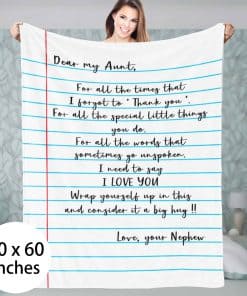 Dear my Aunt,
For all the times that
I forgot to " Thank you ".
For all the special little things
you do.
For all the words that
sometimes go unspoken,
I need to say
I LOVE YOU
Wrap yourself up in this
and consider it a big hug !!
Love, your Nephew
0 x 60
nches